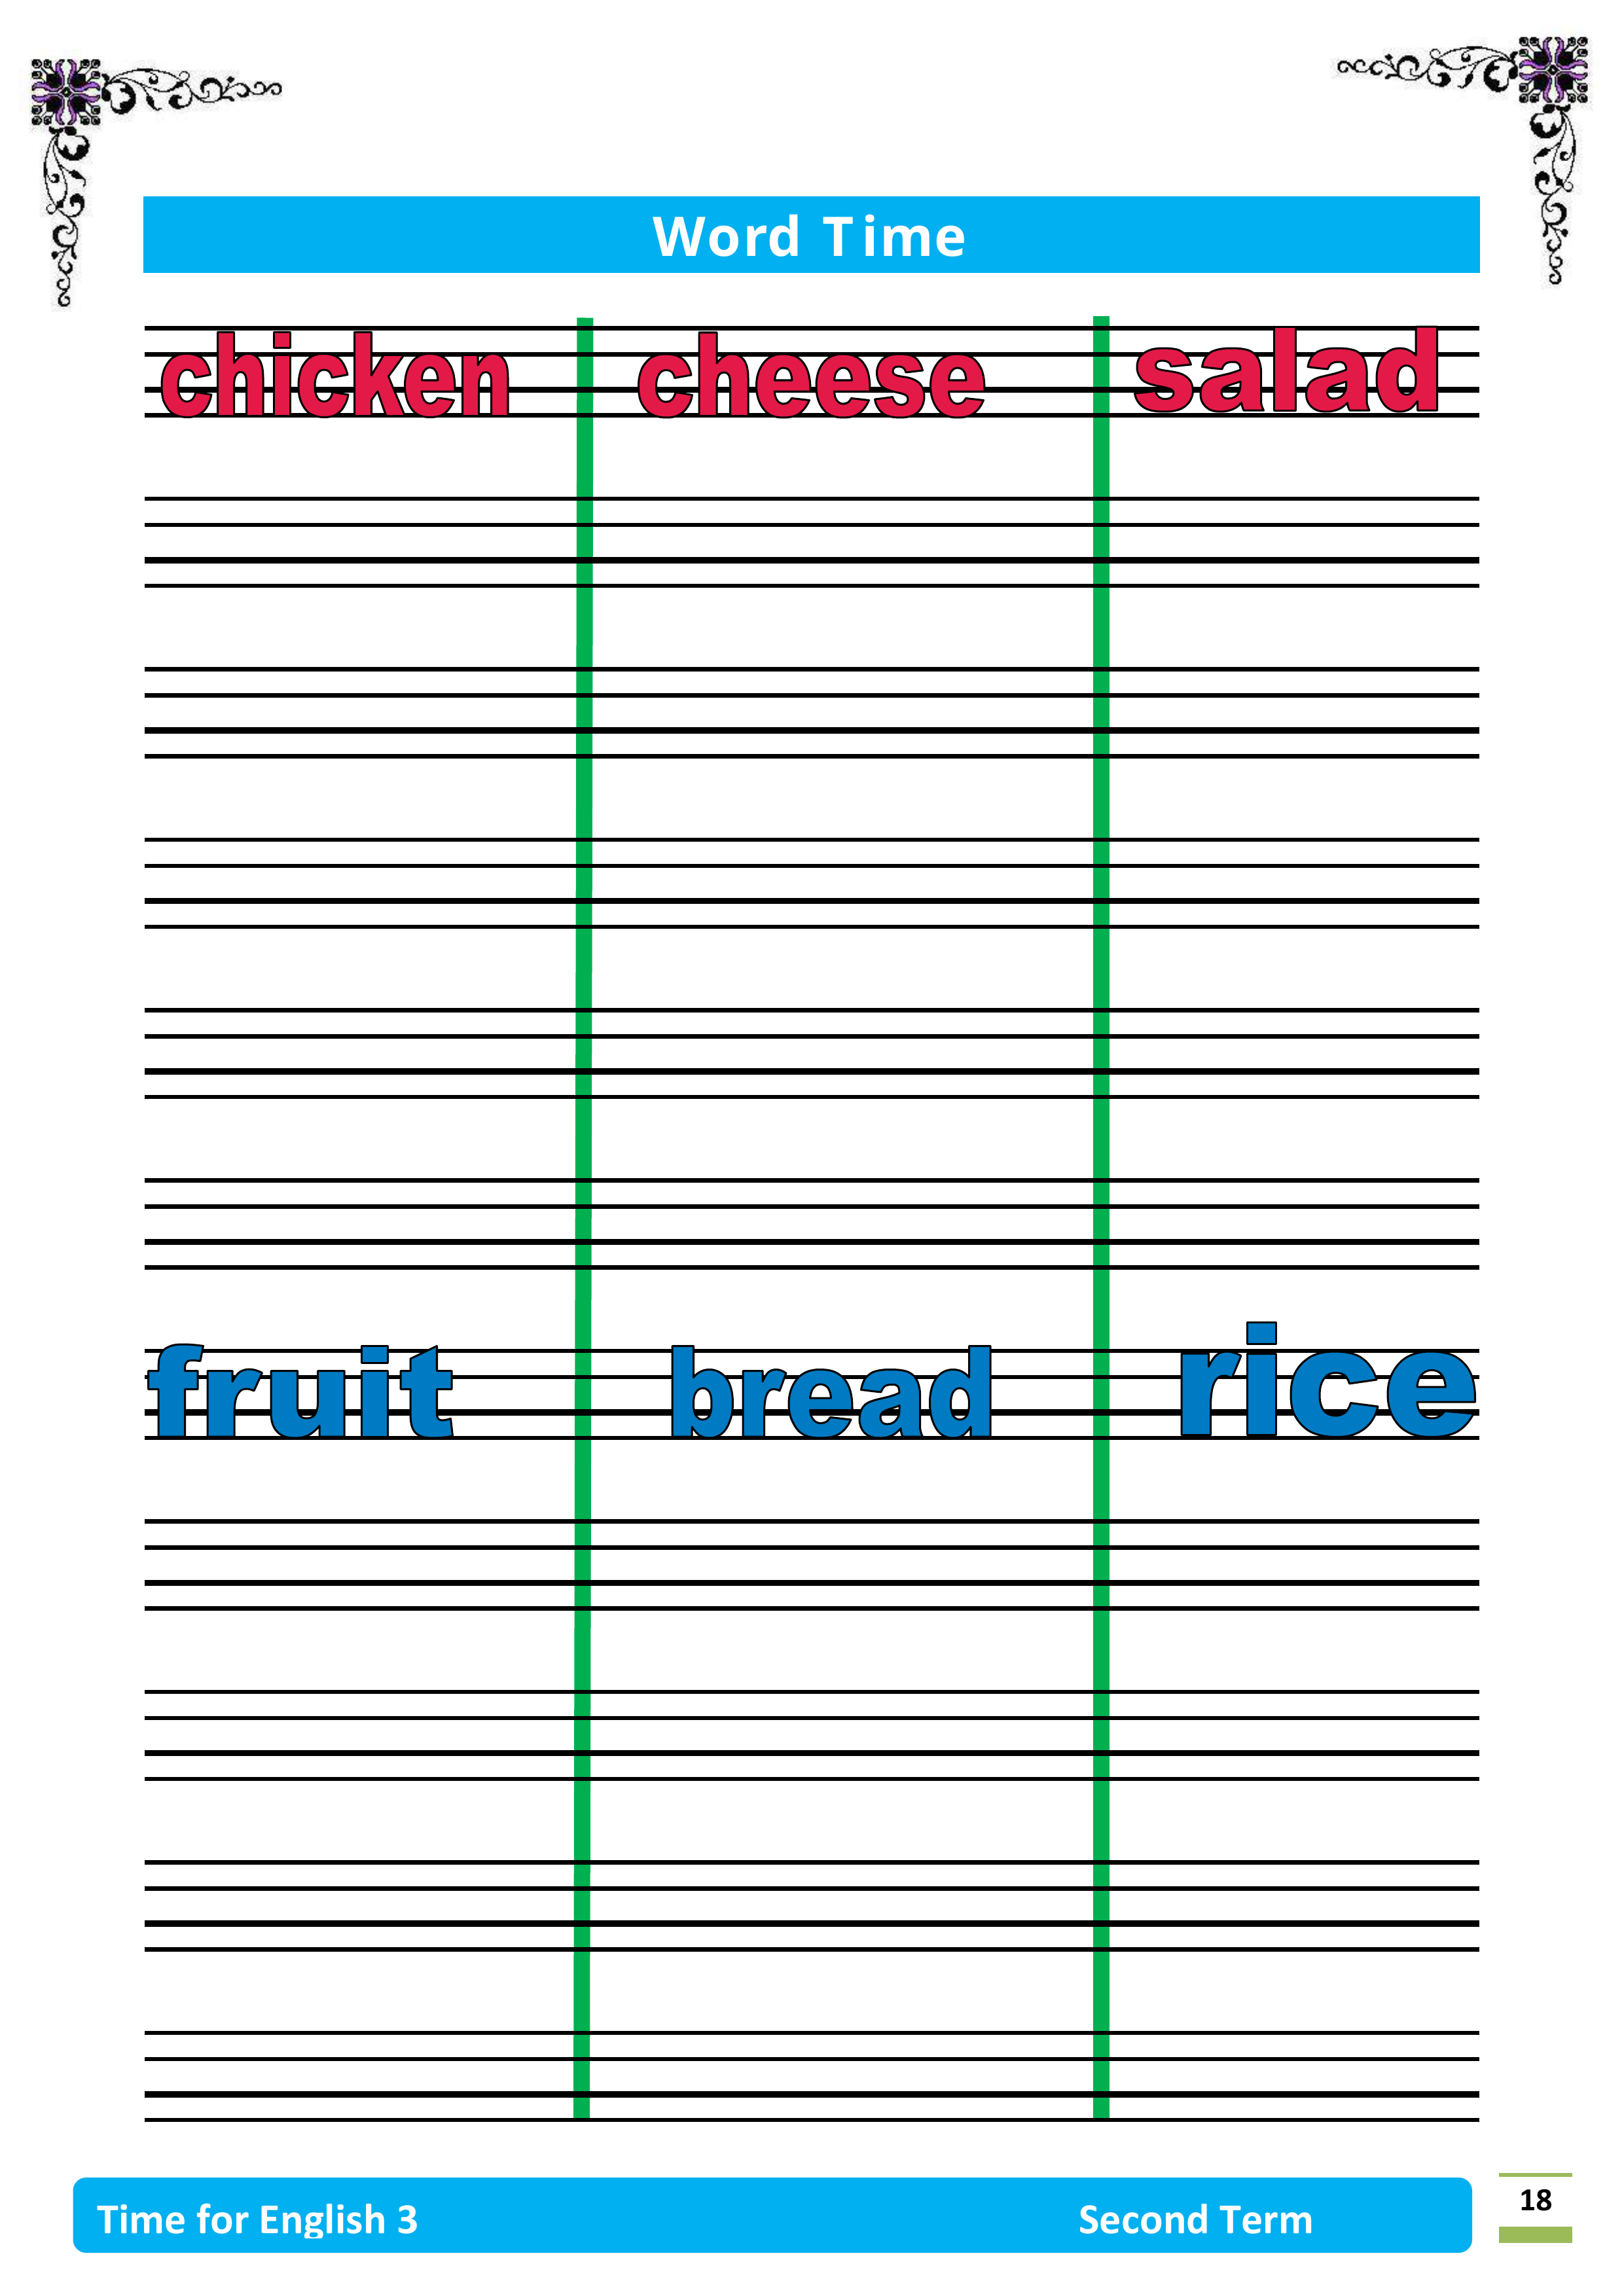 Word Time
chicken cheese salad
fruit bread rice
Time for English 3 Second Term
18